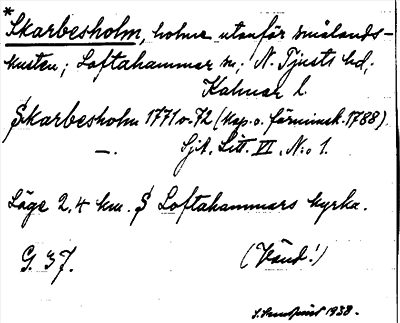 * Skarbesholm, holme utanför smålands-
kusten; Loftahammar sn; N. Tjusts hd;
Kalmar l.
Skarbesholm 1771 o. 72 (Kap. o. färminsk. 1788).
—. Sjk. Litt. VI, N:o 1.
Läge 2,4 km. S Loftahammars kyrka.
G. 37. (Vänd!)
1938.